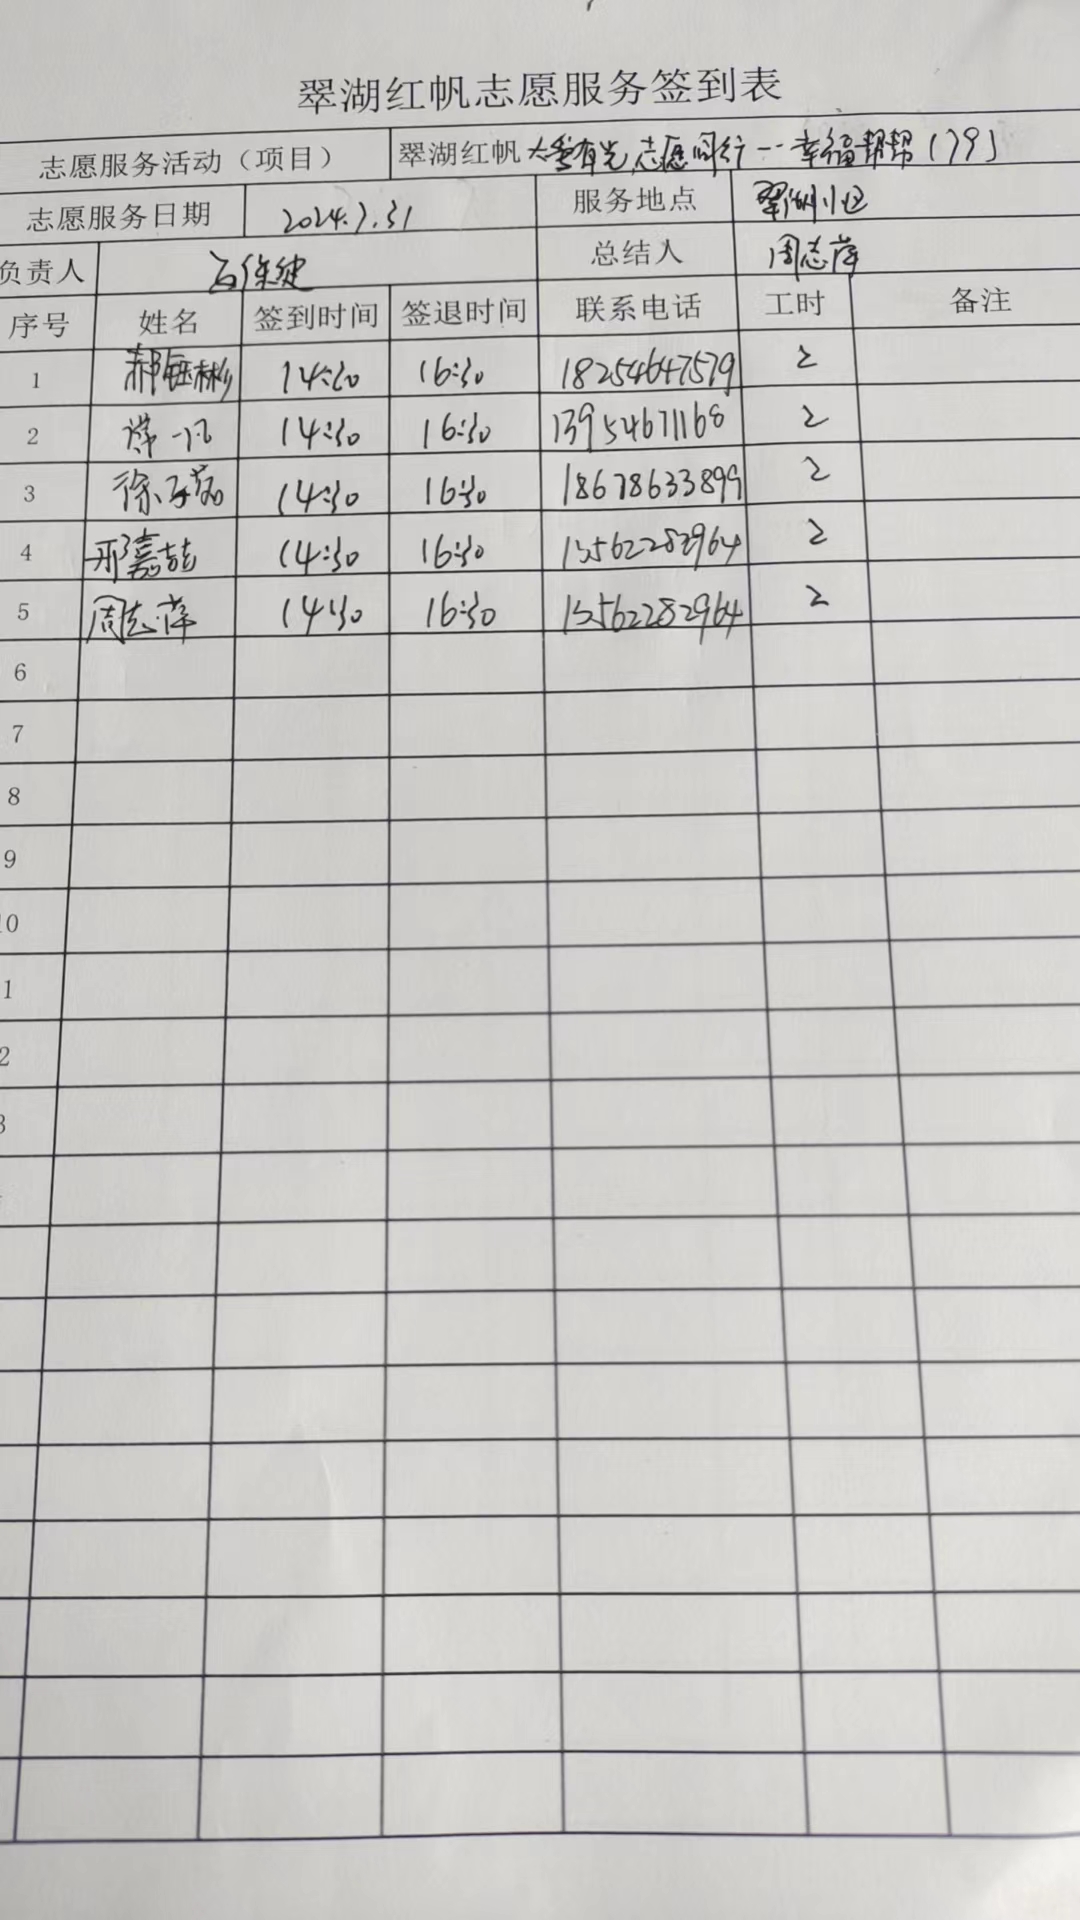 翠湖红帆志愿服务签到表
志愿服务活动（项目） 翠湖红帆 大爱有光,志愿同行--幸福帮帮(79)
志愿服务日期 2024.7.31 服务地点 翠湖小区
负责人 总结人 周志萍
序号 姓名 签到时间 签退时间 联系电话 工时 备注
1 郝钰彬 14:30 16:30 18254647579 2
2 14:30 16:30 13954671168 2
3 徐子茹 14:30 16:30 18678633899 2
4 邢嘉喆 14:30 16:30 15562282964 2
5 周志萍 14:30 16:30 15562282964 2
6
7
8
9
10
1
2
3